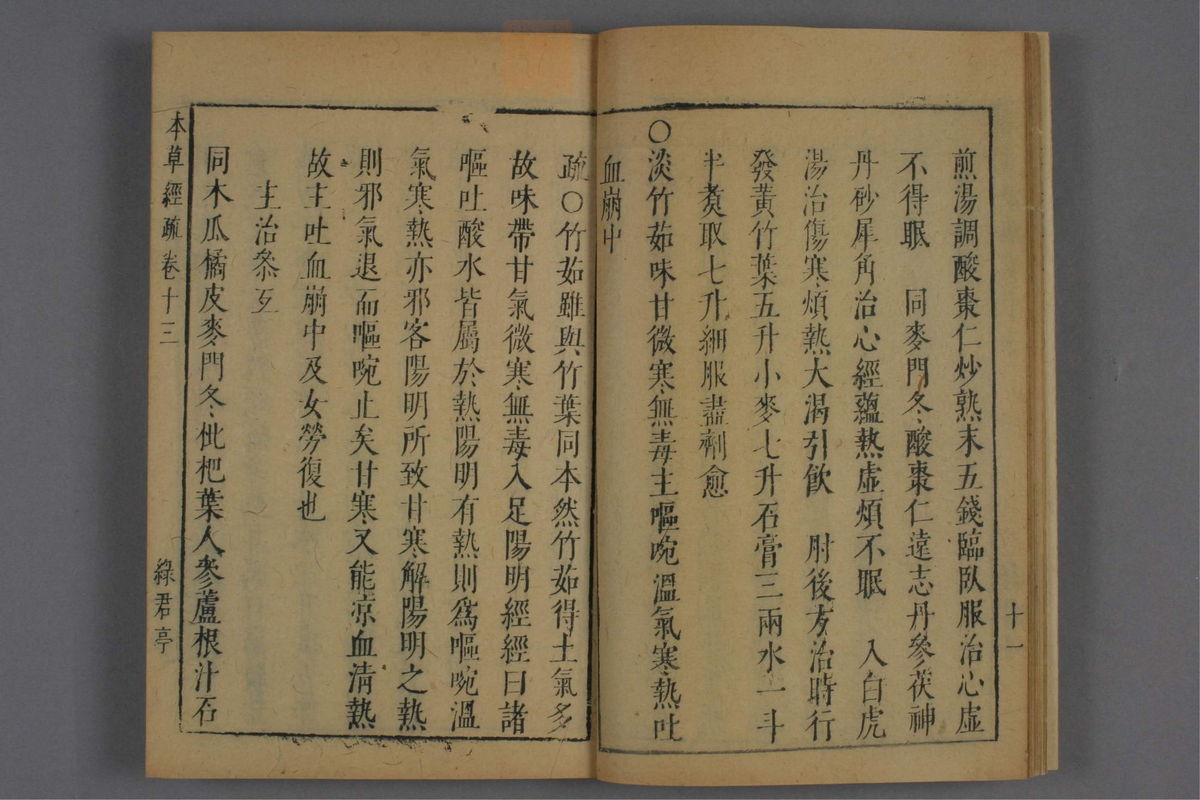 煎湯調酸棗仁炒熟末五錢臨臥服治心虛
不得眠 同麥門冬酸棗仁遠志丹參茯神
丹砂犀角治心經蘊熱虛煩不眠 入白虎
湯治傷寒煩熱大渴引飲 肘後方治時行
發黃竹葉五升小麥七升石膏三兩水一斗
半煑取七升細服盡劑愈
〇淡竹茹味甘微寒無毒主嘔啘溫氣寒熱吐
血崩中
十一
疏〇竹茹雖與竹葉同本然竹茹得土氣多
故味帶甘氣微寒無毒入足陽明經經曰諸
嘔吐酸水皆屬於熱陽明有熱則爲嘔啘溫
氣寒熱亦邪客陽明所致甘寒解陽明之熱
則邪氣退而嘔啘止矣甘寒又能凉血清熱
故主吐血崩中及女勞復也
主治叅互
同木瓜橘皮麥門冬枇杷葉人參蘆根汁石
本草經疏卷十三
綠君亭